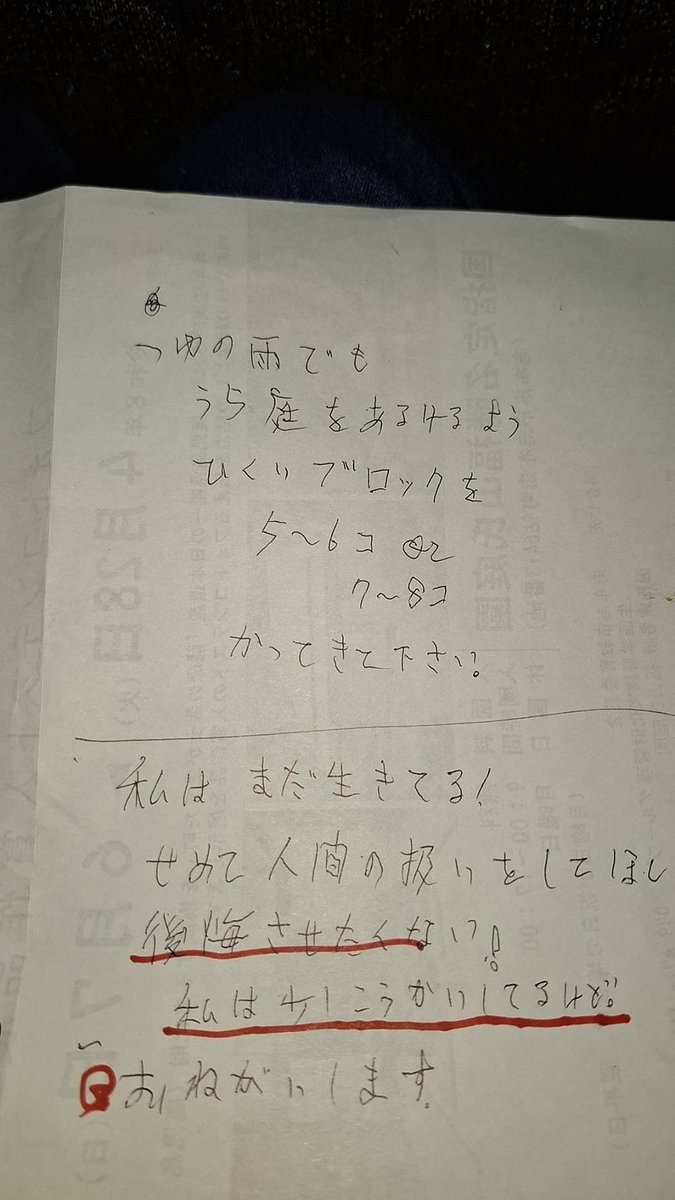 つゆの雨でも
うら庭をあるけるよう
ひくいブロックを
5〜6コ or
7〜8コ
かってきて下さい。
私は まだ生きてる!
せめて人間の扱いをしてほし
後悔させたくない!
私は少しこうかいしてるけど。
おねがいします。